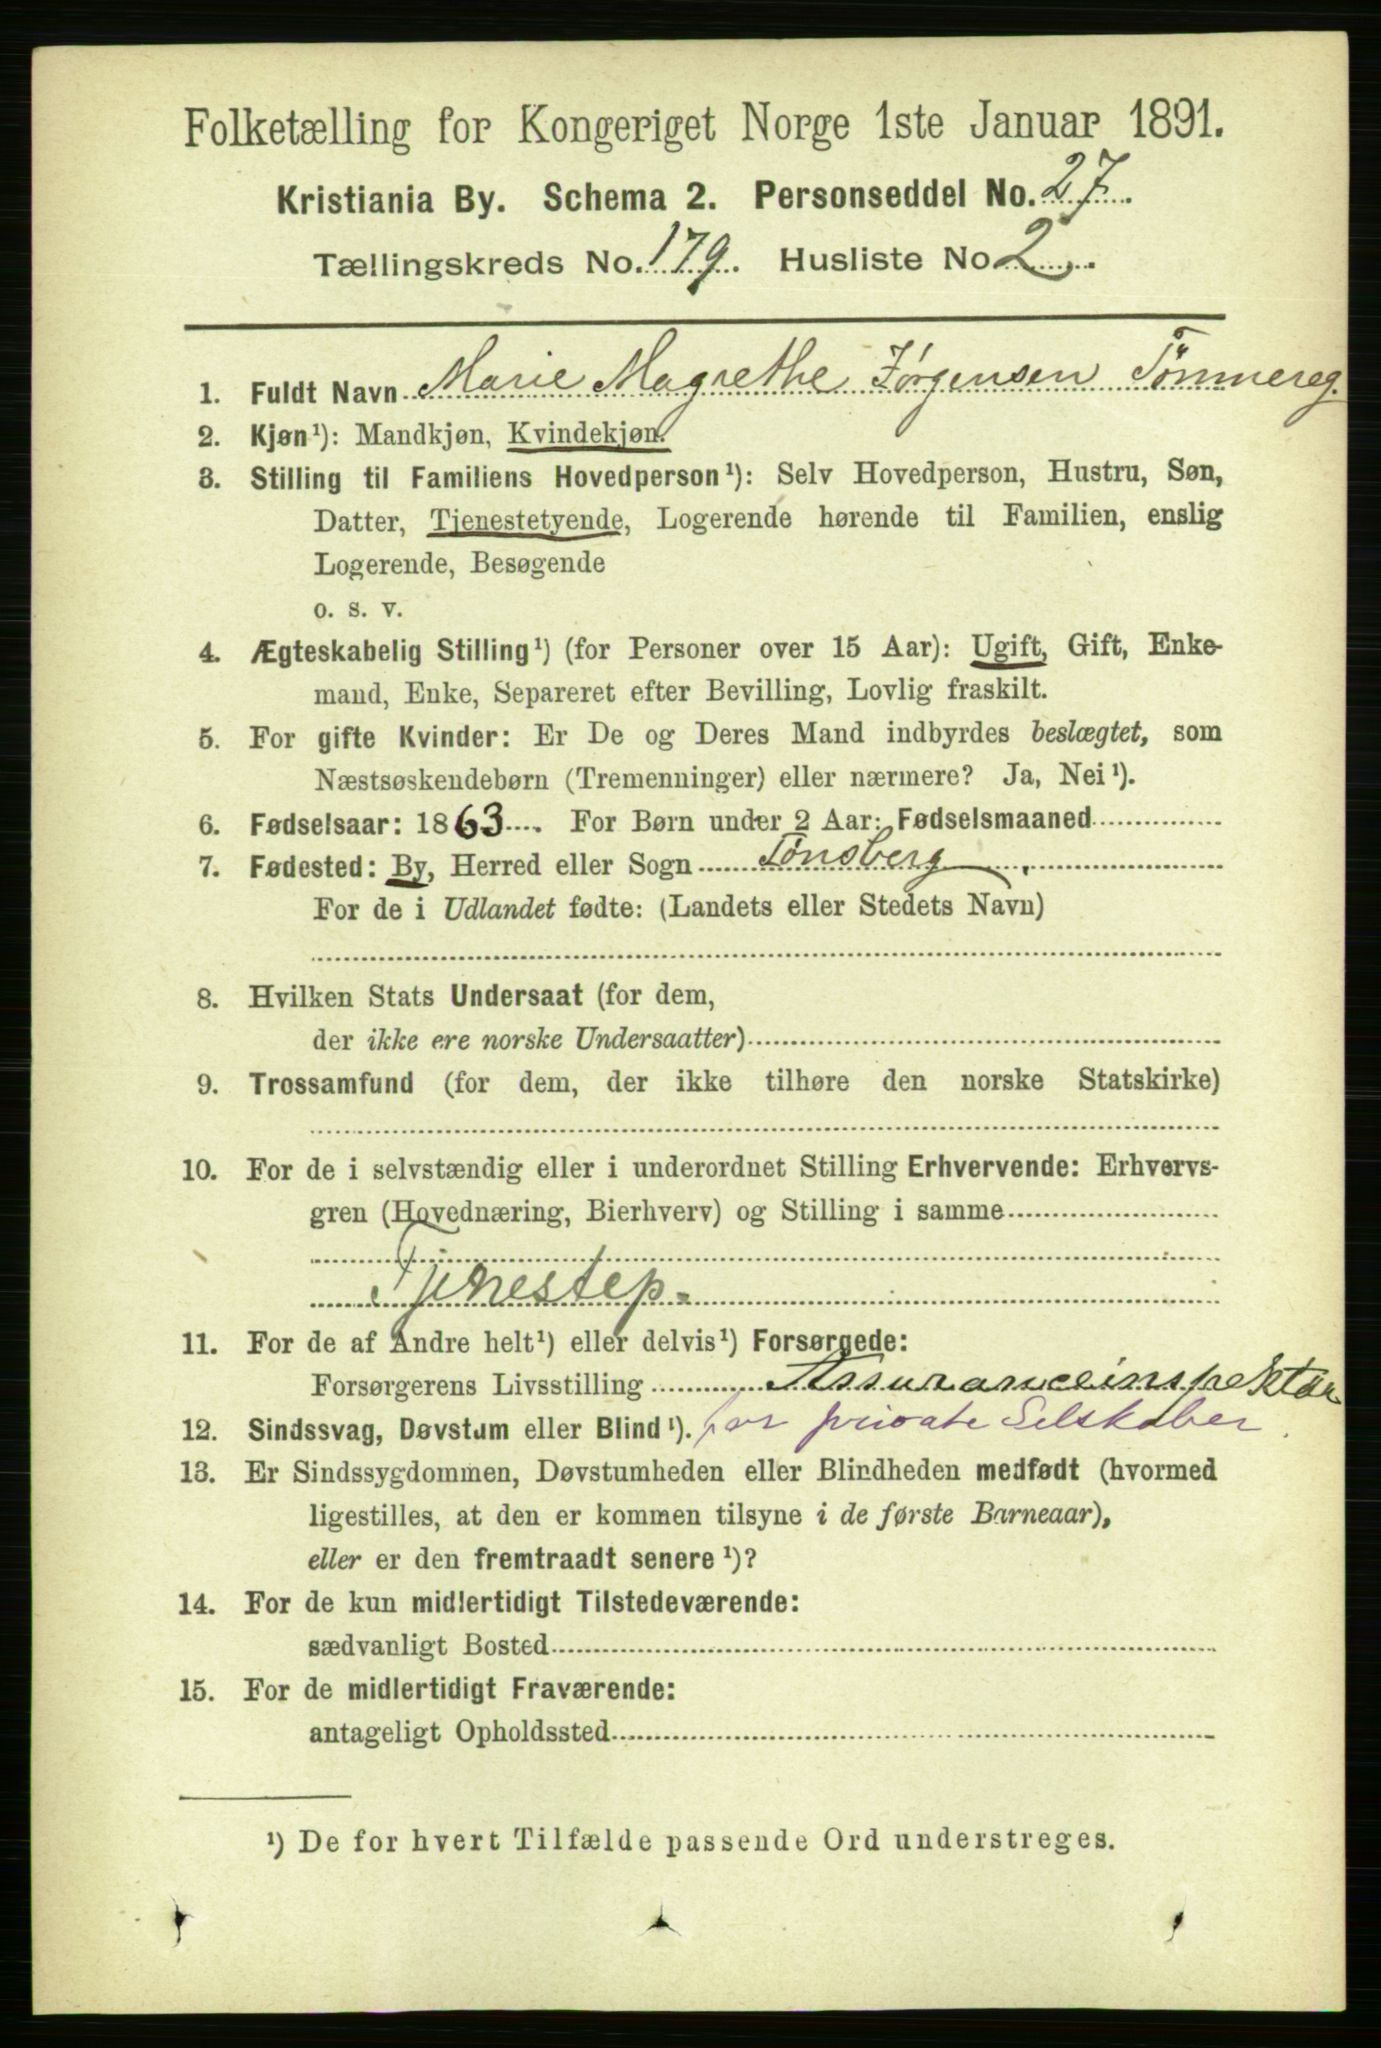 Folketælling for Kongeriget Norge 1ste Januar 1891.
Kristiania By. Schema 2. Personseddel No. 27.
Tællingskreds No. 179. Husliste No 2.
1. Fuldt Navn Marie Magrethe Jørgensen Tömmereg.
2. Kjøn¹): Mandkjøn, Kvindekjøn.
3. Stilling til Familiens Hovedperson¹): Selv Hovedperson, Hustru, Søn,
Datter, Tjenestetyende, Logerende hørende til Familien, enslig
Logerende, Besøgende
o. s. v.
4. Ægteskabelig Stilling¹) (for Personer over 15 Aar): Ugift, Gift, Enke-
mand, Enke, Separeret efter Bevilling, Lovlig fraskilt.
5. For gifte Kvinder: Er De og Deres Mand indbyrdes beslægtet, som
Næstsøskendebørn (Tremenninger) eller nærmere? Ja, Nei¹).
6. Fødselsaar: 1863. For Børn under 2 Aar: Fødselsmaaned
7. Fødested: By, Herred eller Sogn Tønsberg
For de i Udlandet fødte: (Landets eller Stedets Navn)
8. Hvilken Stats Undersaat (for dem,
der ikke ere norske Undersaatter)
9. Trossamfund (for dem, der ikke tilhøre den norske Statskirke)
10. For de i selvstændig eller i underordnet Stilling Erhvervende: Erhvervs-
gren (Hovednæring, Bierhverv) og Stilling i samme
Tjenestep.
11. For de af Andre helt¹) eller delvis¹) Forsørgede:
Forsørgerens Livsstilling Assuranceinspektør
12. Sindssvag, Døvstum eller Blind¹). for private Selskaber.
13. Er Sindssygdommen, Døvstumheden eller Blindheden medfødt (hvormed
ligestilles, at den er kommen tilsyne i de første Barneaar),
eller er den fremtraadt senere¹)?
14. For de kun midlertidigt Tilstedeværende:
sædvanligt Bosted
15. For de midlertidigt Fraværende:
antageligt Opholdssted
¹) De for hvert Tilfælde passende Ord understreges.